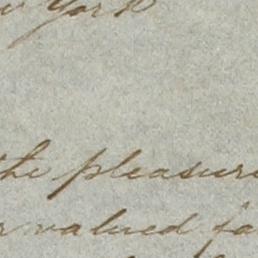 York
the pleasure
valued fa